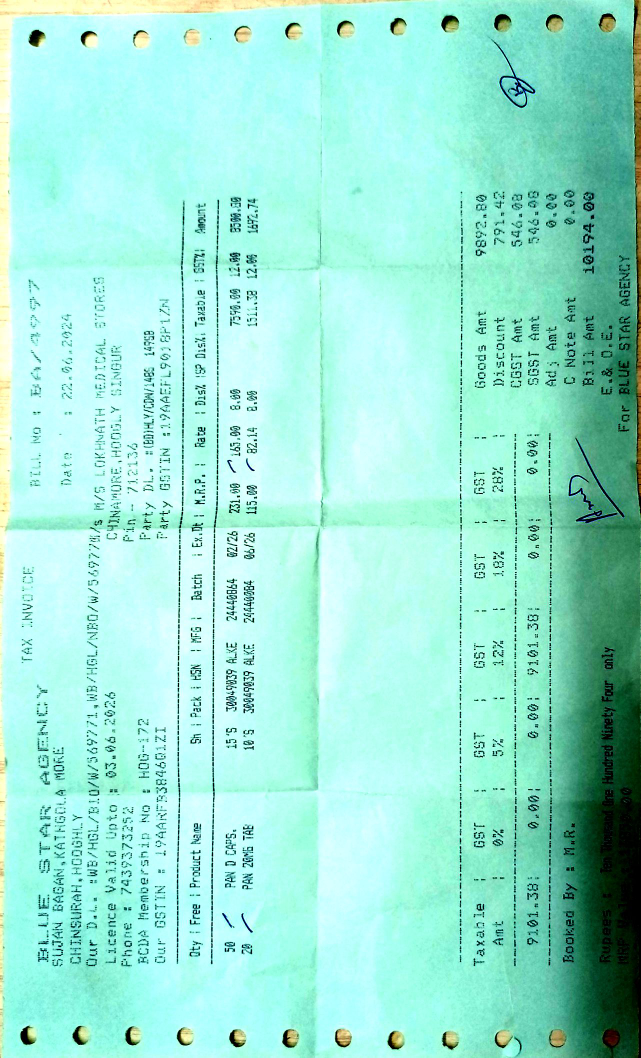 BLUE STAR AGENCY
TAX INVOICE
BILL No : BA/4997
SUJAN BAGAN,KATHGOLA MORE
Date : 22.06.2024
CHINSURAH,HOOGHLY
Our D.L. :WB/HGL/BIO/W/569771,WB/HGL/NBO/W/56977
M/s M/S LOKHNATH MEDICAL STORES
Licence Valid Upto : 03.06.2026
CHINAMORE,HOOGLY SINGUR
Phone : 7439373252
Pin - 712136
BCDA Membership No : HOG-172
Party DL. :(BD)HLY/CDN/1486 149SB
Our GSTIN : 19AARFB3846Q1ZI
Party GSTIN :19AAEFL9018P1ZN
Qty | Free | Product Name | Sh | Pack | HSN | MFG | Batch | Ex.Dt | M.R.P. | Rate | Dis% |SP Dis%| Taxable | GST%| Amount
50 PAN D CAPS. 15'S 30049039 ALKE 24440864 02/26 231.00 165.00 8.00 7590.00 12.00 8500.80
20 PAN 20MG TAB 10'S 30049039 ALKE 24440084 06/26 115.00 82.14 8.00 1511.38 12.00 1692.74
Taxable | GST | GST | GST | GST | GST | Goods Amt 9892.80
Amt | 0% | 5% | 12% | 18% | 28% | Discount 791.42
CGST Amt 546.08
9101.38| 0.00| 0.00| 9101.38| 0.00| 0.00| SGST Amt 546.08
Adj Amt 0.00
Booked By : M.R.
C Note Amt 0.00
Bill Amt 10194.00
Rupees : Ten Thousand One Hundred Ninety Four only
E.& O.E.
For BLUE STAR AGENCY